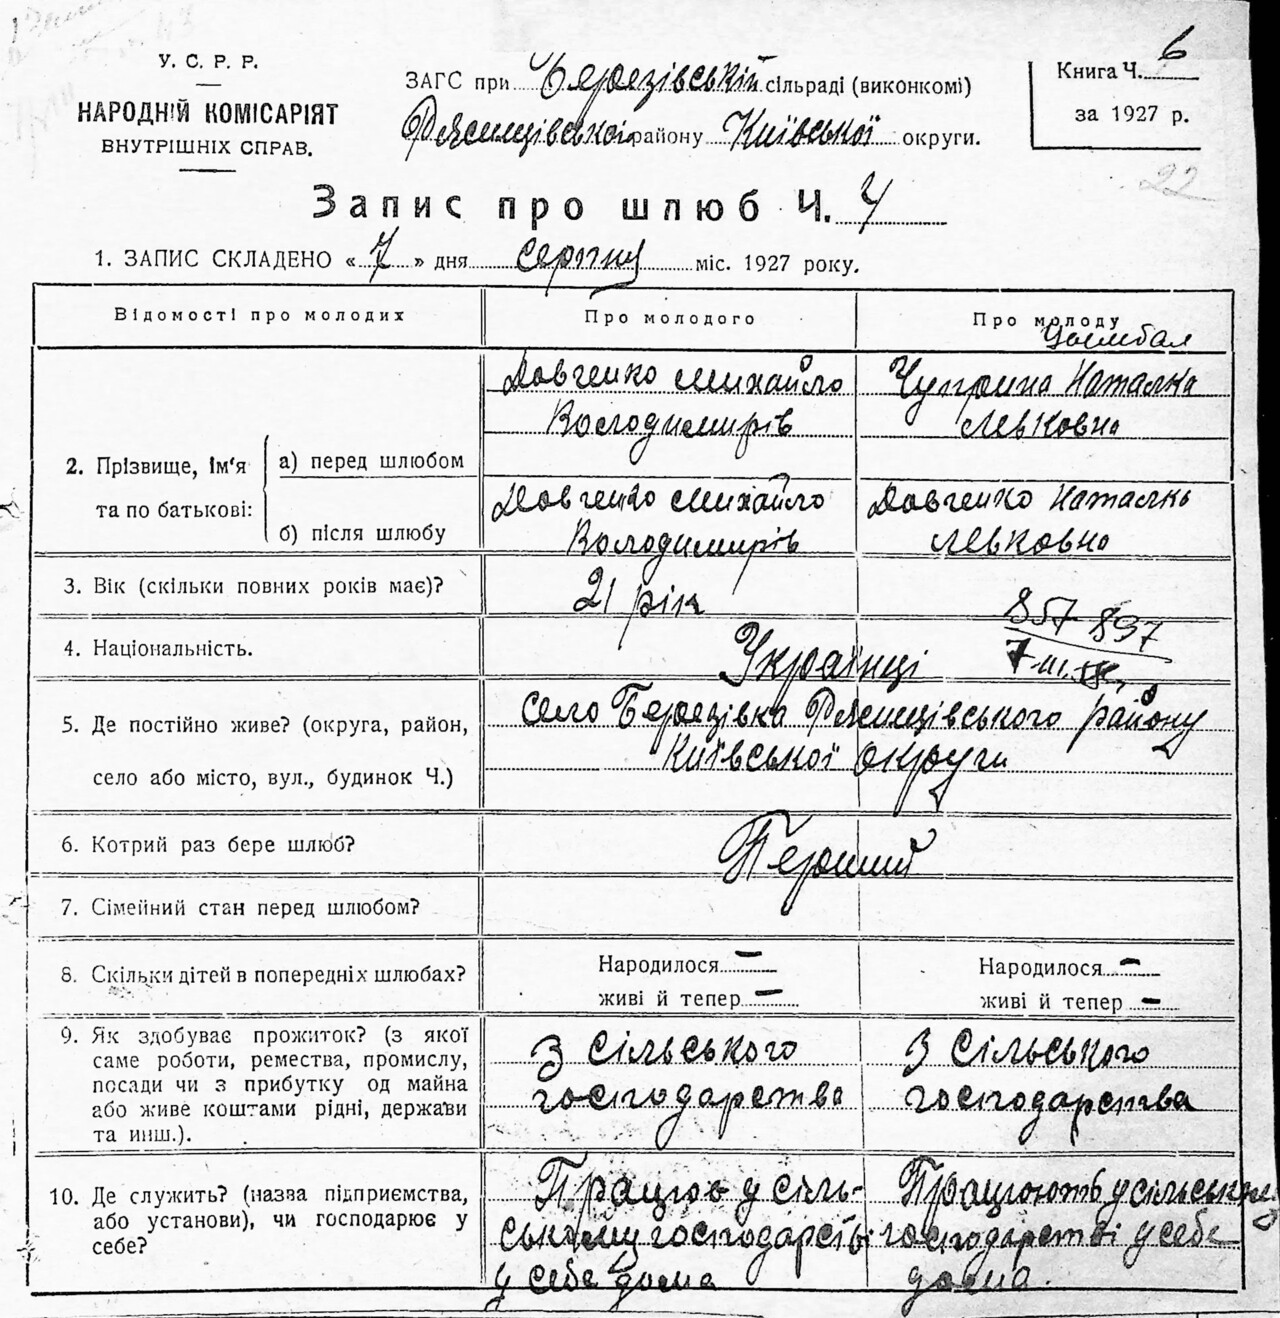 У. С. Р. Р.
НАРОДНІЙ КОМІСАРІЯТ
ВНУТРІШНІХ СПРАВ.
ЗАГС при Березівській сільраді (виконкомі)
Ржищівської району Київської округи.
Книга Ч. 6
за 1927 р.
22
Запис про шлюб Ч. 4
1. ЗАПИС СКЛАДЕНО « 7 » дня серпня міс. 1927 року.
Відомості про молодих Про молодого Про молоду
Цымбал
Довченко Михайло Чуприна Наталка
Володимирів Левковна
2. Прізвище, ім'я та по батькові: а) перед шлюбом
Довченко Михайло Довченко Наталкь
б) після шлюбу Володимирів Левковна
3. Вік (скільки повних років має)? 21 рік
857 897
4. Національність. Українці
5. Де постійно живе? (округа, район, село Березівка Ржищівського району
село або місто, вул., будинок Ч.) Київської округи
6. Котрий раз бере шлюб? Перший
7. Сімейний стан перед шлюбом?
8. Скільки дітей в попередніх шлюбах? Народилося — Народилося —
живі й тепер — живі й тепер —
9. Як здобуває прожиток? (з якої
саме роботи, ремества, промислу,
посади чи з прибутку од майна
або живе коштами рідні, держави
та инш.).
З сільського З сільського
господарства господарства
10. Де служить? (назва підприємства,
або установи), чи господарює у
себе?
Працює у сіль- Працюють у сільському
ському господарстві господарстві у себе
у себе дома дома.